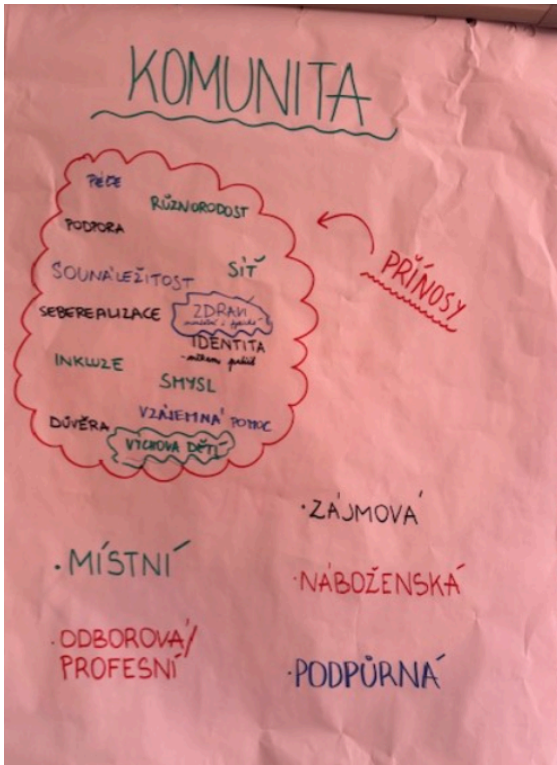 KOMUNITA
PÉČE
RŮZNORODOST
PODPORA
SOUNÁLEŽITOST
SÍŤ
SEBEREALIZACE
ZDRAVÍ
IDENTITA
INKLUZE
SMYSL
VZÁJEMNÁ POMOC
DŮVĚRA
VÝCHOVA DĚTÍ
PŘÍNOSY
· ZÁJMOVÁ
· MÍSTNÍ
· NÁBOŽENSKÁ
· ODBOROVÁ/
PROFESNÍ
· PODPŮRNÁ